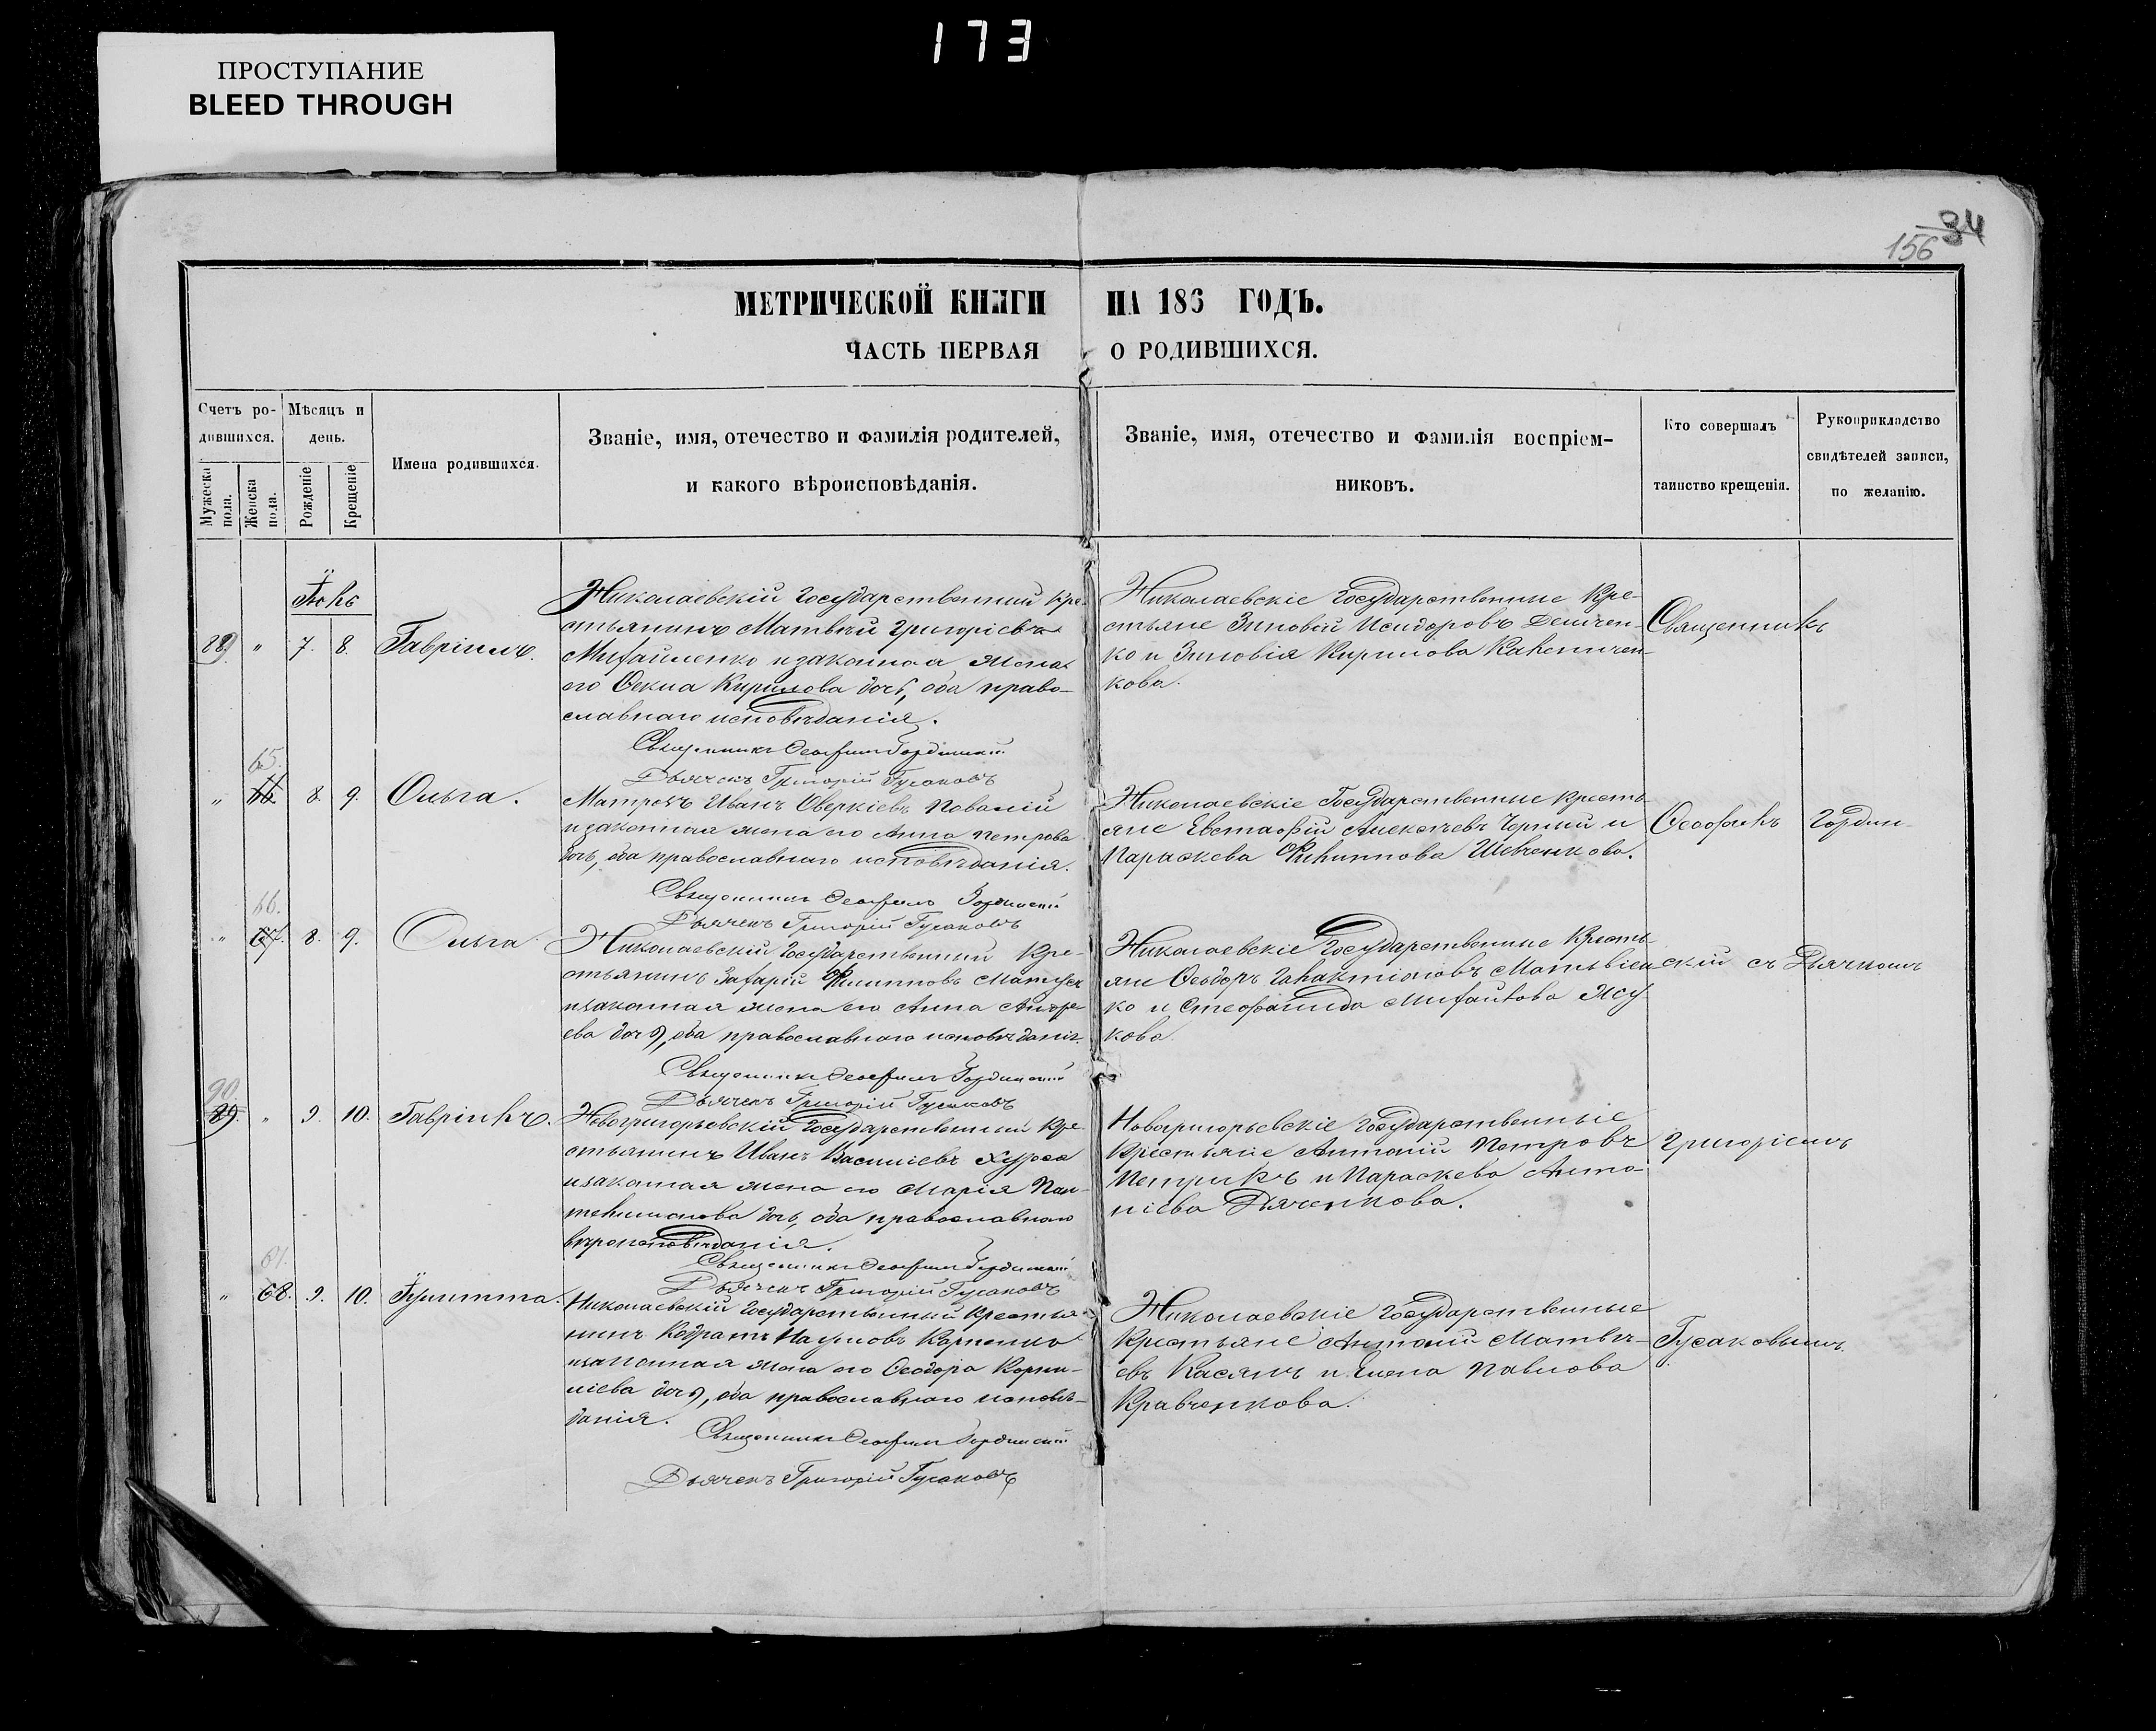 173
ПРОСТУПАНИЕ
BLEED THROUGH
34
156
МЕТРИЧЕСКОЙ КНИГИ НА 186 ГОДЪ.
ЧАСТЬ ПЕРВАЯ О РОДИВШИХСЯ.
Счетъ родившихся.
Мужеска пола.
Женска пола.
Мѣсяцъ и день.
Рожденіе
Крещеніе
Имена родившихся.
Званіе, имя, отечество и фамилія родителей,
и какого вѣроисповѣданія.
Званіе, имя, отечество и фамилія воспріем-
никовъ.
Кто совершалъ
таинство крещенія.
Рукоприкладство
свидѣтелей записи,
по желанію.
89. " 7. 8. Гавріилъ.
Николаевскій Государственный Кре-
стьянинъ Матвѣй Григоріевъ
Михайленко и законная жена
его Кирилова дочь, оба право-
славнаго исповѣданія.
Священникъ Ѳеофилъ Гординскій
Дьячекъ Григорій Гусаковъ
Николаевскіе Государственные Кре-
стьяне Зиновій Исидоровъ Демчен-
ко и Зиновія Кирилова
кова.
Священникъ
65.
" 8. 9. Ольга.
Матрозъ Иванъ Аверкіевъ
и законная жена его Анна Петрова
дочь, оба православнаго исповѣданія.
Священникъ Ѳеофилъ Гординскій
Дьячекъ Григорій Гусаковъ
Николаевскіе Государственные Кресть-
яне Евстафій Алексѣевъ Черный и
Параскева Филиппова Шевченкова.
Ѳеофилъ Гордин-
66.
" 67. 8. 9. Ольга
Николаевскій Государственный Кре-
стьянинъ Захарій Филипповъ
и законная жена его Анна Андре-
ева дочь, оба православнаго исповѣданія.
Священникъ Ѳеофилъ Гординскій
Дьячекъ Григорій Гусаковъ
Николаевскіе Государственные Кресть-
яне Ѳеодоръ Галактіоновъ Матвіен-
ко и Стефанида Михайлова
кова.
скій съ Дьячкомъ
90.
89. " 9. 10. Гавріилъ.
Новогригорьевскій Государственный Кре-
стьянинъ Иванъ Василіевъ
и законная жена его Марія Пан-
телимонова дочь, оба православнаго
вѣроисповѣданія.
Священникъ Ѳеофилъ Гординскій
Дьячекъ Григорій Гусаковъ
Новогригорьевскіе Государственные
Крестьяне Антоній Петровъ
Петрикъ и Параскева Анто-
ніева Дяченкова.
Григоріемъ
67.
" 68. 9. 10. Іулитта.
Николаевскій Государственный Крестья-
нинъ Кодратъ Наумовъ Карпенко
и законная жена его Ѳеодора Корни-
ліева дочь, оба православнаго исповѣ-
данія.
Священникъ Ѳеофилъ Гординскій
Дьячекъ Григорій Гусаковъ
Николаевскіе Государственные
Крестьяне Антоній Матвѣ-
евъ Касянъ и Елена Павлова
Кравченкова.
Гусаковымъ.